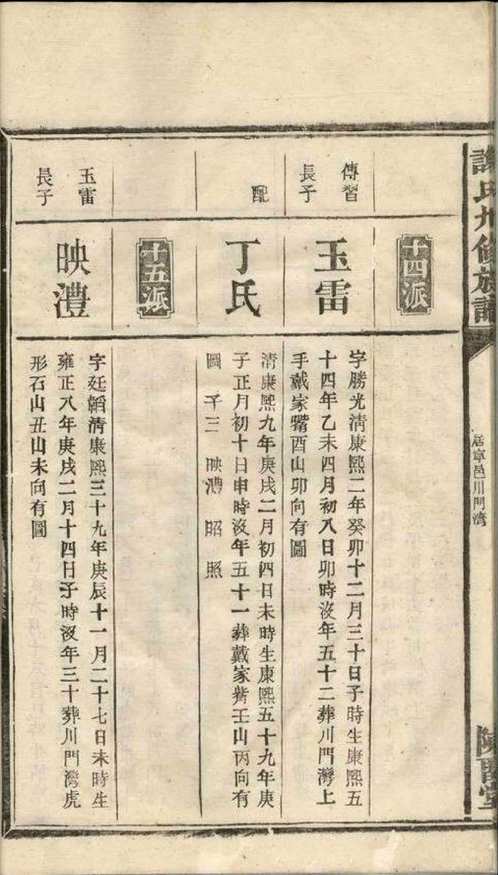 氏九修族譜
居寧邑川門灣
十四派
傳習
長子
玉雷
字勝光清康熙二年癸卯十二月三十日子時生康熙五
十四年乙未四月初八日卯時沒年五十二葬川門灣上
手戴家嘴酉山卯向有圖
配
丁氏
清康熙九年庚戌二月初四日未時生康熙五十九年庚
子正月初十日申時沒年五十一葬戴家嘴壬山丙向有
圖 子三 映澧 昭 照
十五派
玉雷
長子
映澧
字廷韜清康熙三十九年庚辰十一月二十七日未時生
雍正八年庚戌二月十四日子時沒年三十葬川門灣虎
形石山丑山未向有圖